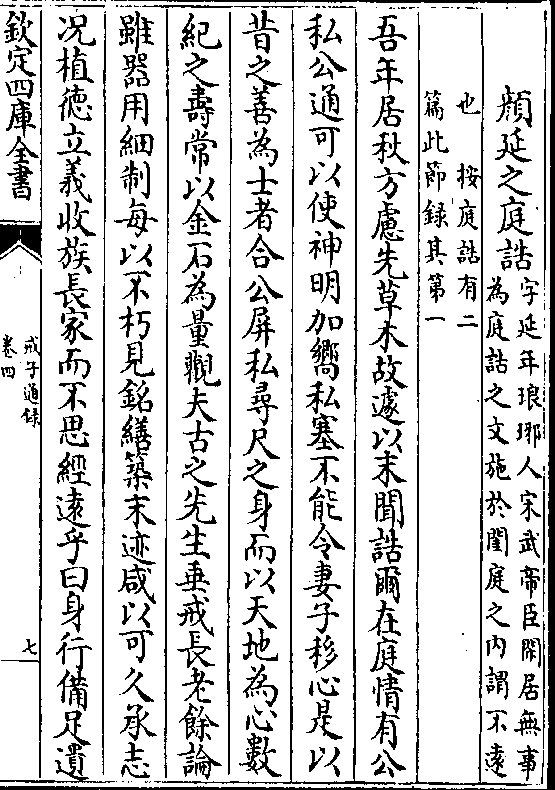 顔延之庭誥字延年琅琊人宋武帝臣閑居無事
為庭誥之文施於閨庭之内謂不遠
也　按庭誥有二
篇此節録其第一
吾年居秋方慮先草木故遽以末聞誥爾在庭情有公
私公通可以使神明加嚮私塞不能令妻子移心是以
昔之善為士者合公屏私尋尺之身而以天地為心數
紀之壽常以金石為量觀夫古之先生垂戒長老餘論
雖器用細制每以不朽見銘繕築末迹咸以可久承志
况植德立義收族長家而不思經遠乎曰身行備足遺
欽定四庫全書
戒子通録
卷四
七